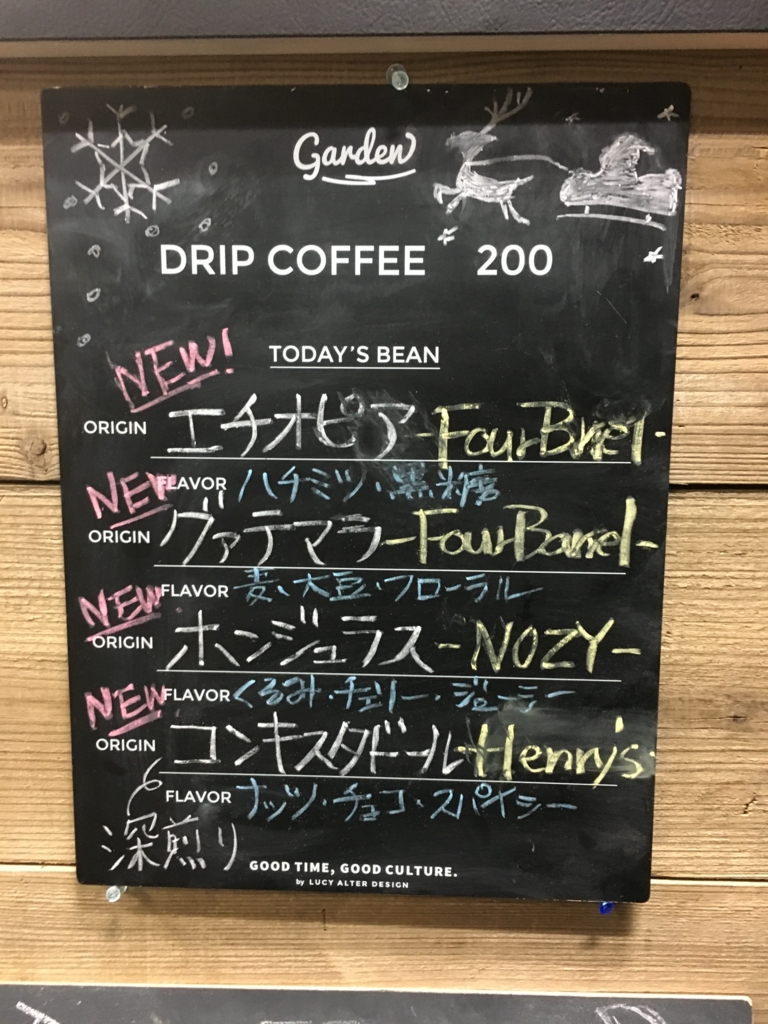 Garden
DRIP COFFEE 200
NEW!
TODAY'S BEAN
ORIGIN エチオピア -FourBarrel-
NEW
FLAVOR ハチミツ・黒糖
ORIGIN グァテマラ -FourBarrel-
FLAVOR 麦、大豆・フローラル
NEW
ORIGIN ホンジュラス -NOZY-
NEW
FLAVOR くるみ・チェリー・ジューシー
ORIGIN コンキスタドール -Henry's
FLAVOR ナッツ・チョコ・スパイシー
深煎り
GOOD TIME, GOOD CULTURE.
by LUCY ALTER DESIGN